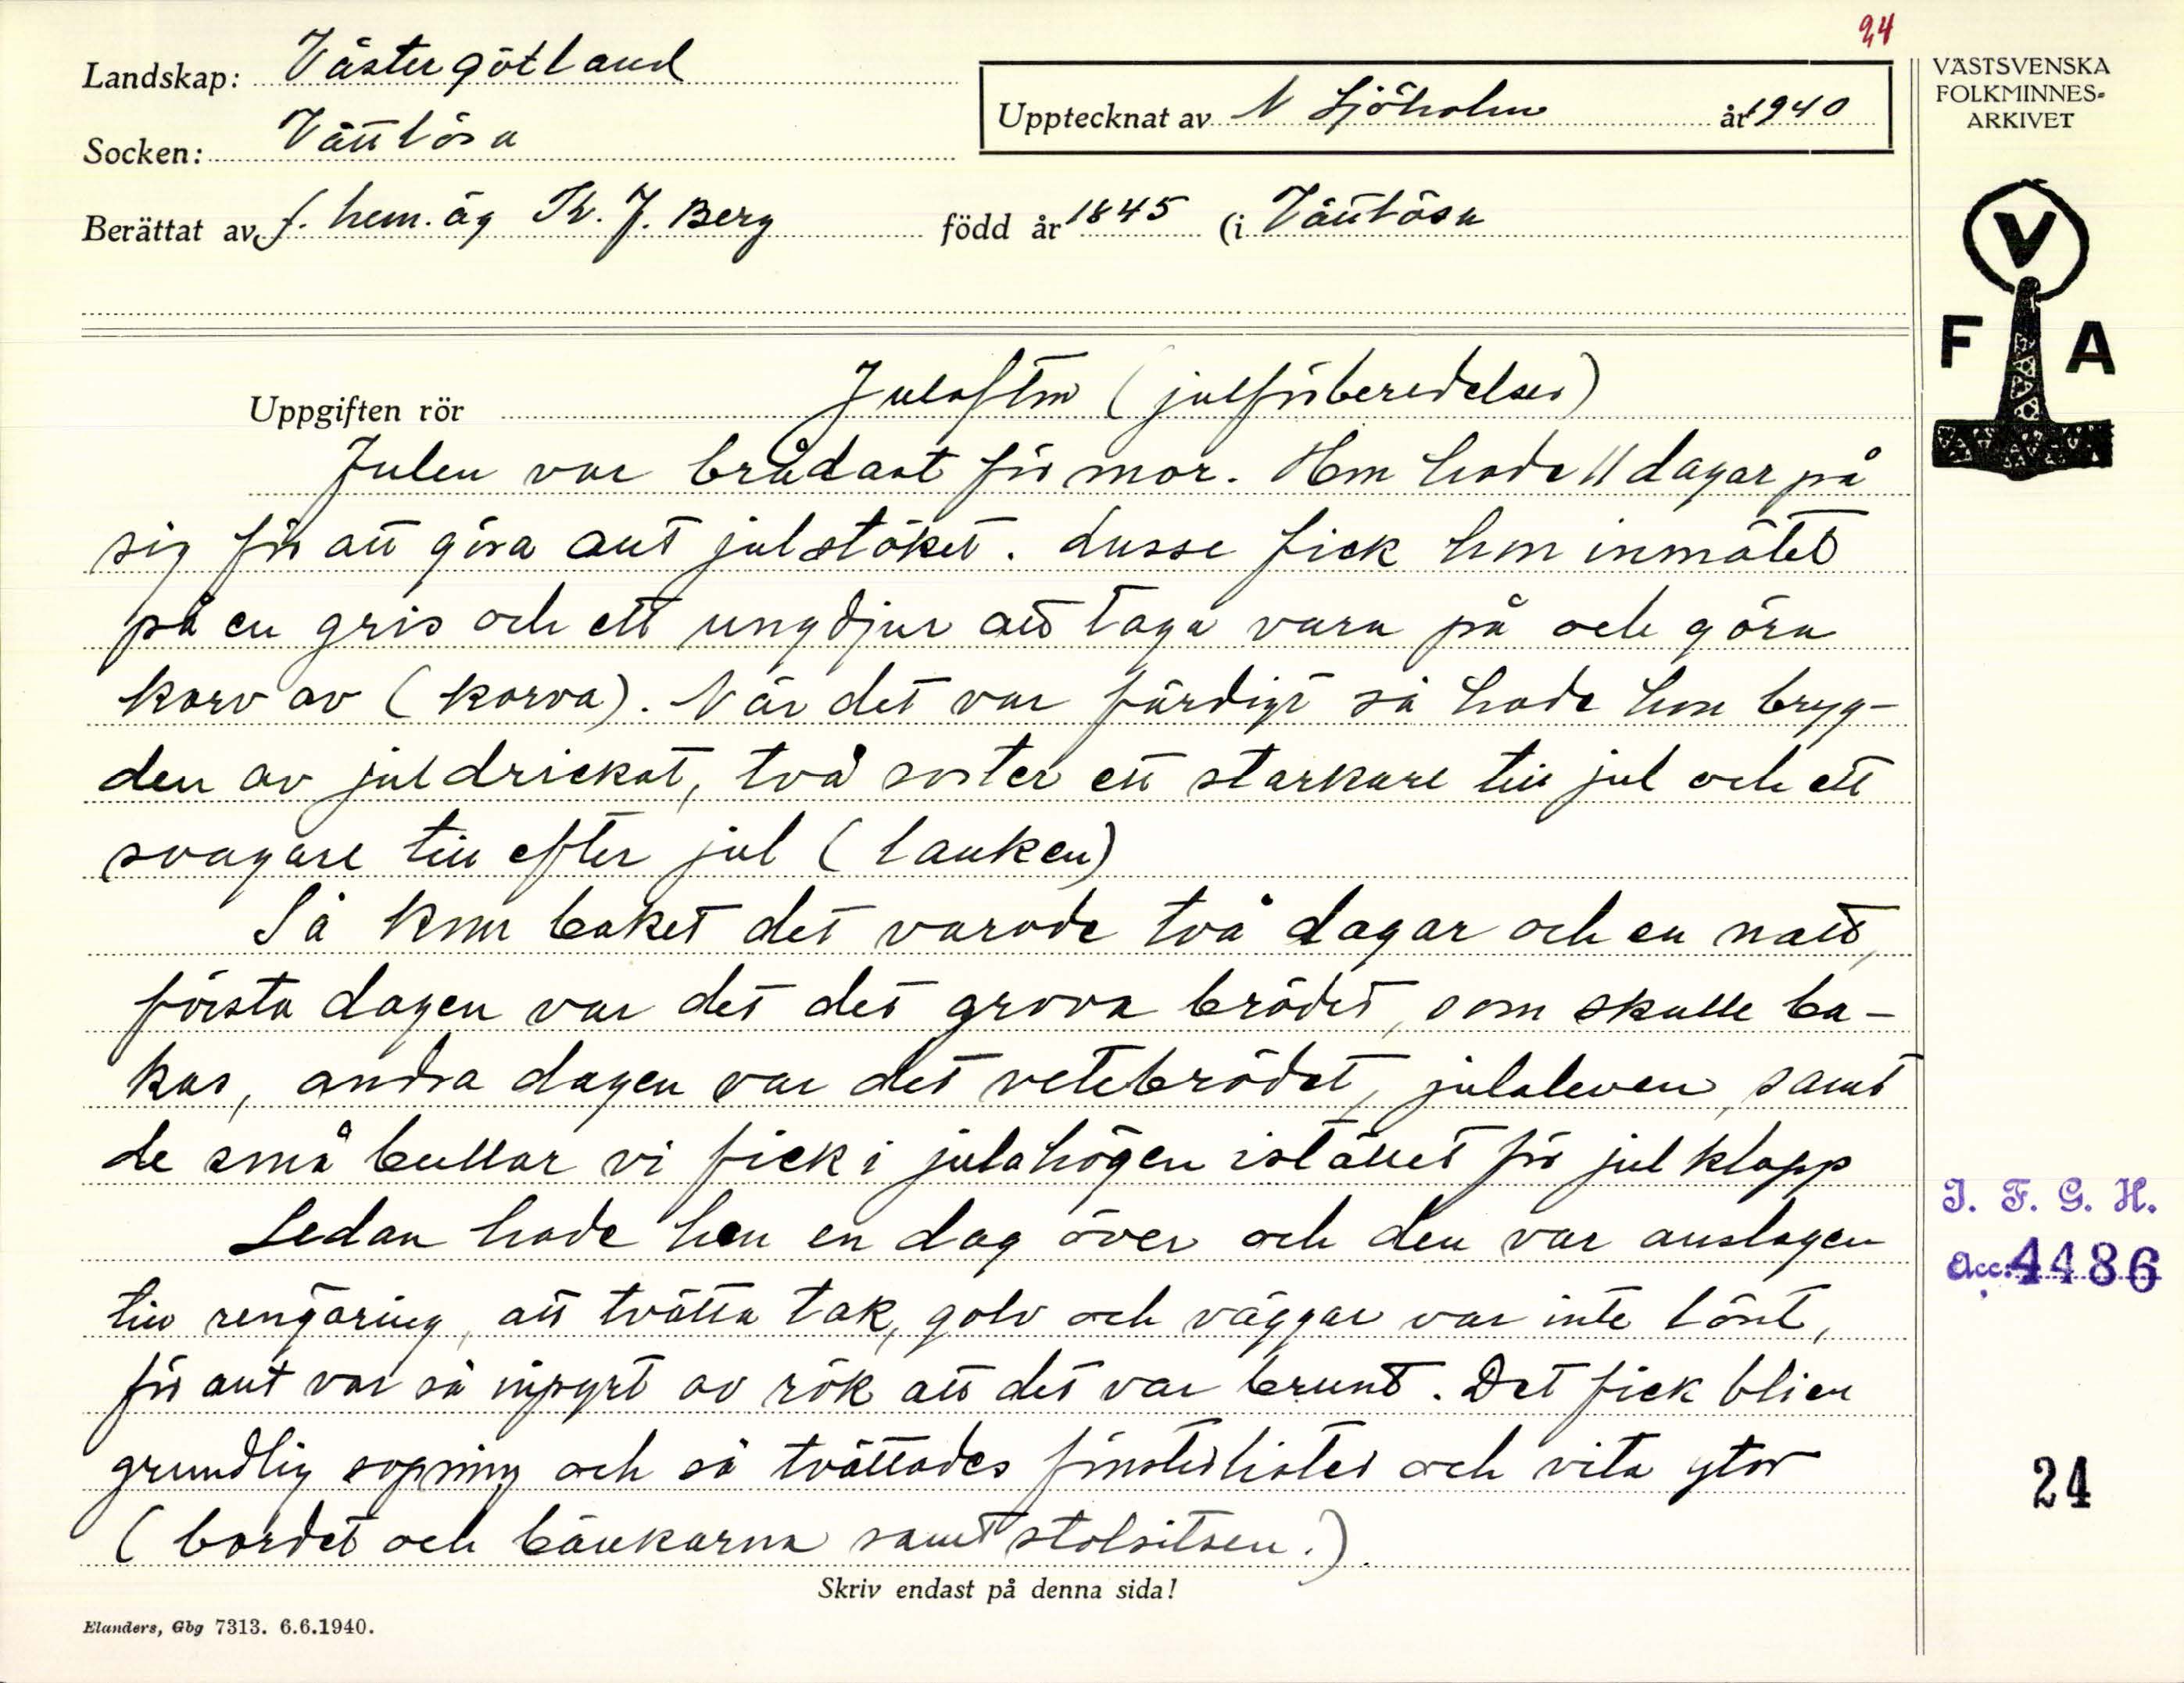 24
Landskap: Västergötland
Socken: Vättlösa
Upptecknat av N Sjöholm år 1940
Berättat av f. hem. äg Th. J. Berg född år 1845 (i Vättlösa
VÄSTSVENSKA
FOLKMINNES-
ARKIVET
V
F A
Uppgiften rör Julafton (julförberedelser)
Julen var brådast för mor. Hon hade 11 dagar på
sig för att göra allt julstöket. Lusse fick hon inmätet
på en gris och ett ungdjur att taga vara på och göra
korv av (korva). När det var färdigt så hade hon bryg-
den av juldrickat, två sorter ett starkare till jul och ett
svagare till efter jul (lanken)
Så kom baket det varade två dagar och en natt,
första dagen var det det grova brödet, som skulle ba-
kas, andra dagen var det vetebrödet, julaleven, samt
de små bullar vi fick i julahögen istället för julklapp
Sedan hade hon en dag över och den var anslagen
till rengöring, att tvätta tak, golv och väggar var inte lönt,
för allt var så inpyrt av rök att det var brunt. Det fick bli en
grundlig sopning och så tvättades fönsterlister och vita ytor
(bordet och bänkarna samt stolsitsen.)
Skriv endast på denna sida!
Elanders, Gbg 7313. 6.6.1940.
I. F. G. H.
Acc: 4486
24